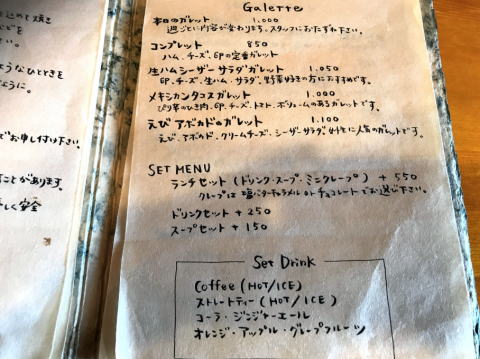 Galette
本日のガレット 1.000
週ごとに内容が変わります。スタッフにおたずね下さい。
コンプレット 850
ハム、チーズ、卵の定番ガレット
生ハムシーザーサラダガレット 1.050
卵・チーズ・生ハム・サラダ、野菜好きの方におすすめです。
メキシカンタコスガレット 1.000
ぴり辛のひき肉、卵・チーズ、トマト、ボリュームのあるガレットです。
えびアボカドのガレット 1.100
えび、アボカド、クリームチーズ、シーザーサラダ、女性に人気のガレットです。
SET MENU
ランチセット (ドリンク・スープ・ミニクレープ) + 550
クレープは塩バターキャラメル or チョコレートでお選び下さい。
ドリンクセット + 250
スープセット + 150
Set Drink
Coffee (HOT/ICE)
ストレートティー (HOT/ICE)
コーラ・ジンジャーエール
オレンジ・アップル・グレープフルーツ
込めて焼き
ようなひとときを
ように。
でお申し付け下さい。
ことがあります。
しく安全